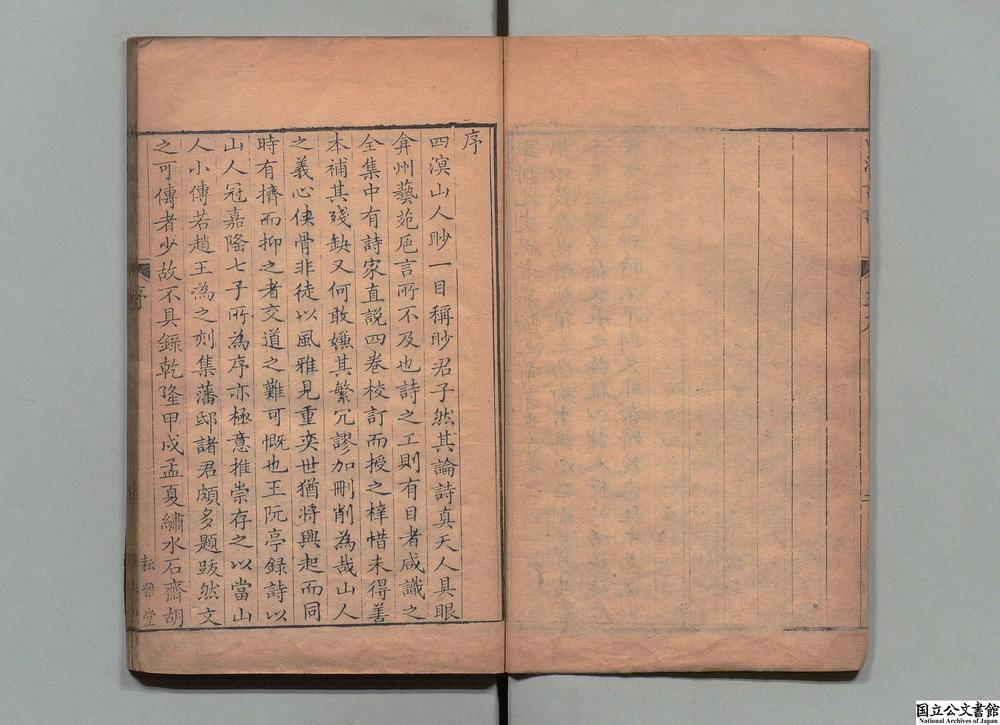 序
四溟山人眇一目稱眇君子然其論詩真天人具眼
弇州藝苑巵言所不及也詩之工則有目者咸識之
全集中有詩家直説四卷校訂而授之梓惜未得善
本補其殘缺又何敢嫌其繁冗謬加刪削為哉山人
之義心俠骨非徒以風雅見重奕世猶將興起而同
時有擠而抑之者交道之難可慨也王阮亭録詩以
山人冠嘉隆七子所為序亦極意推崇存之以當山
人小傳若趙王為之刻集藩邸諸君頗多題跋然文
之可傳者少故不具錄乾隆甲戌孟夏繡水石齋胡
序
耘雅堂
国立公文書館
National Archives of Japan